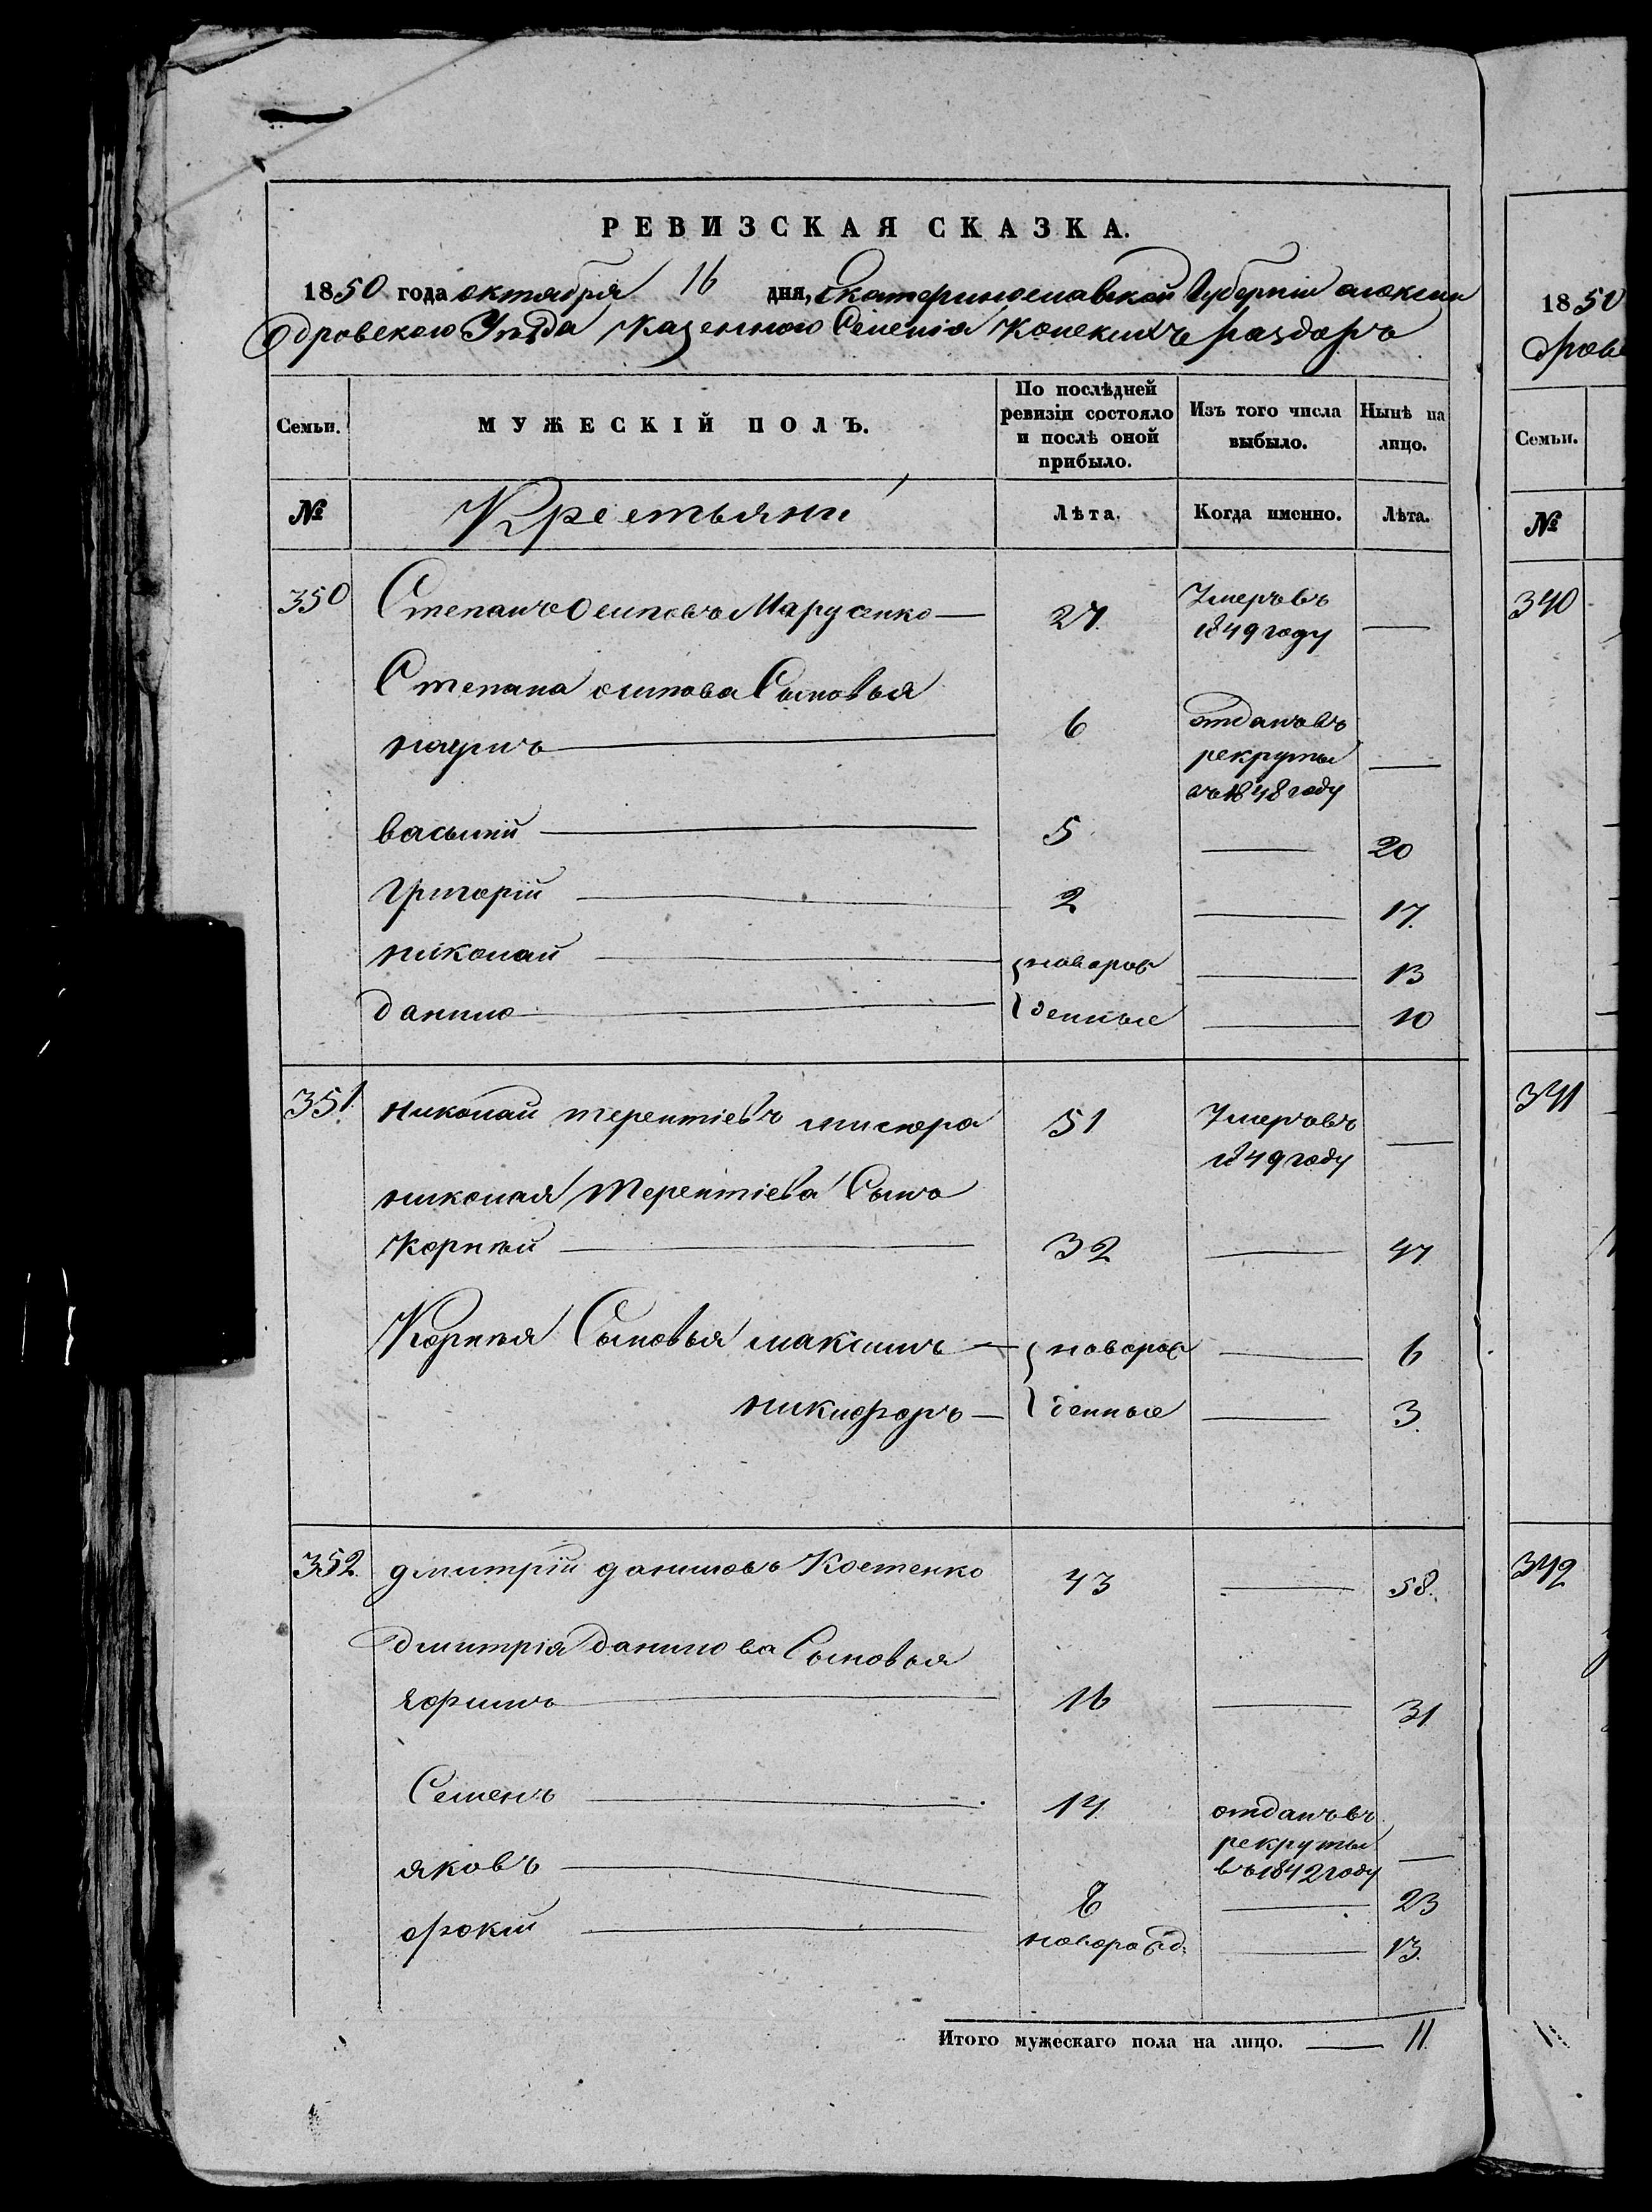 РЕВИЗСКАЯ СКАЗКА.
1850 года октября 16 дня, Екатеринославской Губерніи алексан
дровского Уѣзда Казенного Селенія Конскихъ раздоръ
Семьи. МУЖЕСКІЙ ПОЛЪ. По послѣдней ревизіи состояло и послѣ оной прибыло. Изъ того числа выбыло. Нынѣ на лицо.
№ Крестьяни Лѣта. Когда именно. Лѣта.
350 Степанъ Осиповъ Марусенко — 27 Умеръ въ 1849 году —
Степана осипова Сыновья
наумъ — 6 отданъ въ рекруты въ 1848 году —
василий — 5 — 20
Григорій — 2 — 17
николай — новорож — 13
данило — денные — 10
351 николай терентіевъ мисюра 51 Умеръ въ 1849 году —
николая терентіева Сынъ
Корнѣй — 32 — 47
Корнѣя Сыновья максимъ — новорож — 6
никифоръ — денные — 3
352 дмитрій даниловъ Костенко 43 — 58.
дмитрія данилова Сыновья
Ефимъ — 16 — 31
Семенъ — 14 отданъ въ рекруты въ 1842 году —
яковъ — 8 — 23
— новорожд. — 13.
Итого мужескаго пола на лицо. — 11.
1850
дрове
Семьи.
№
340
341
342